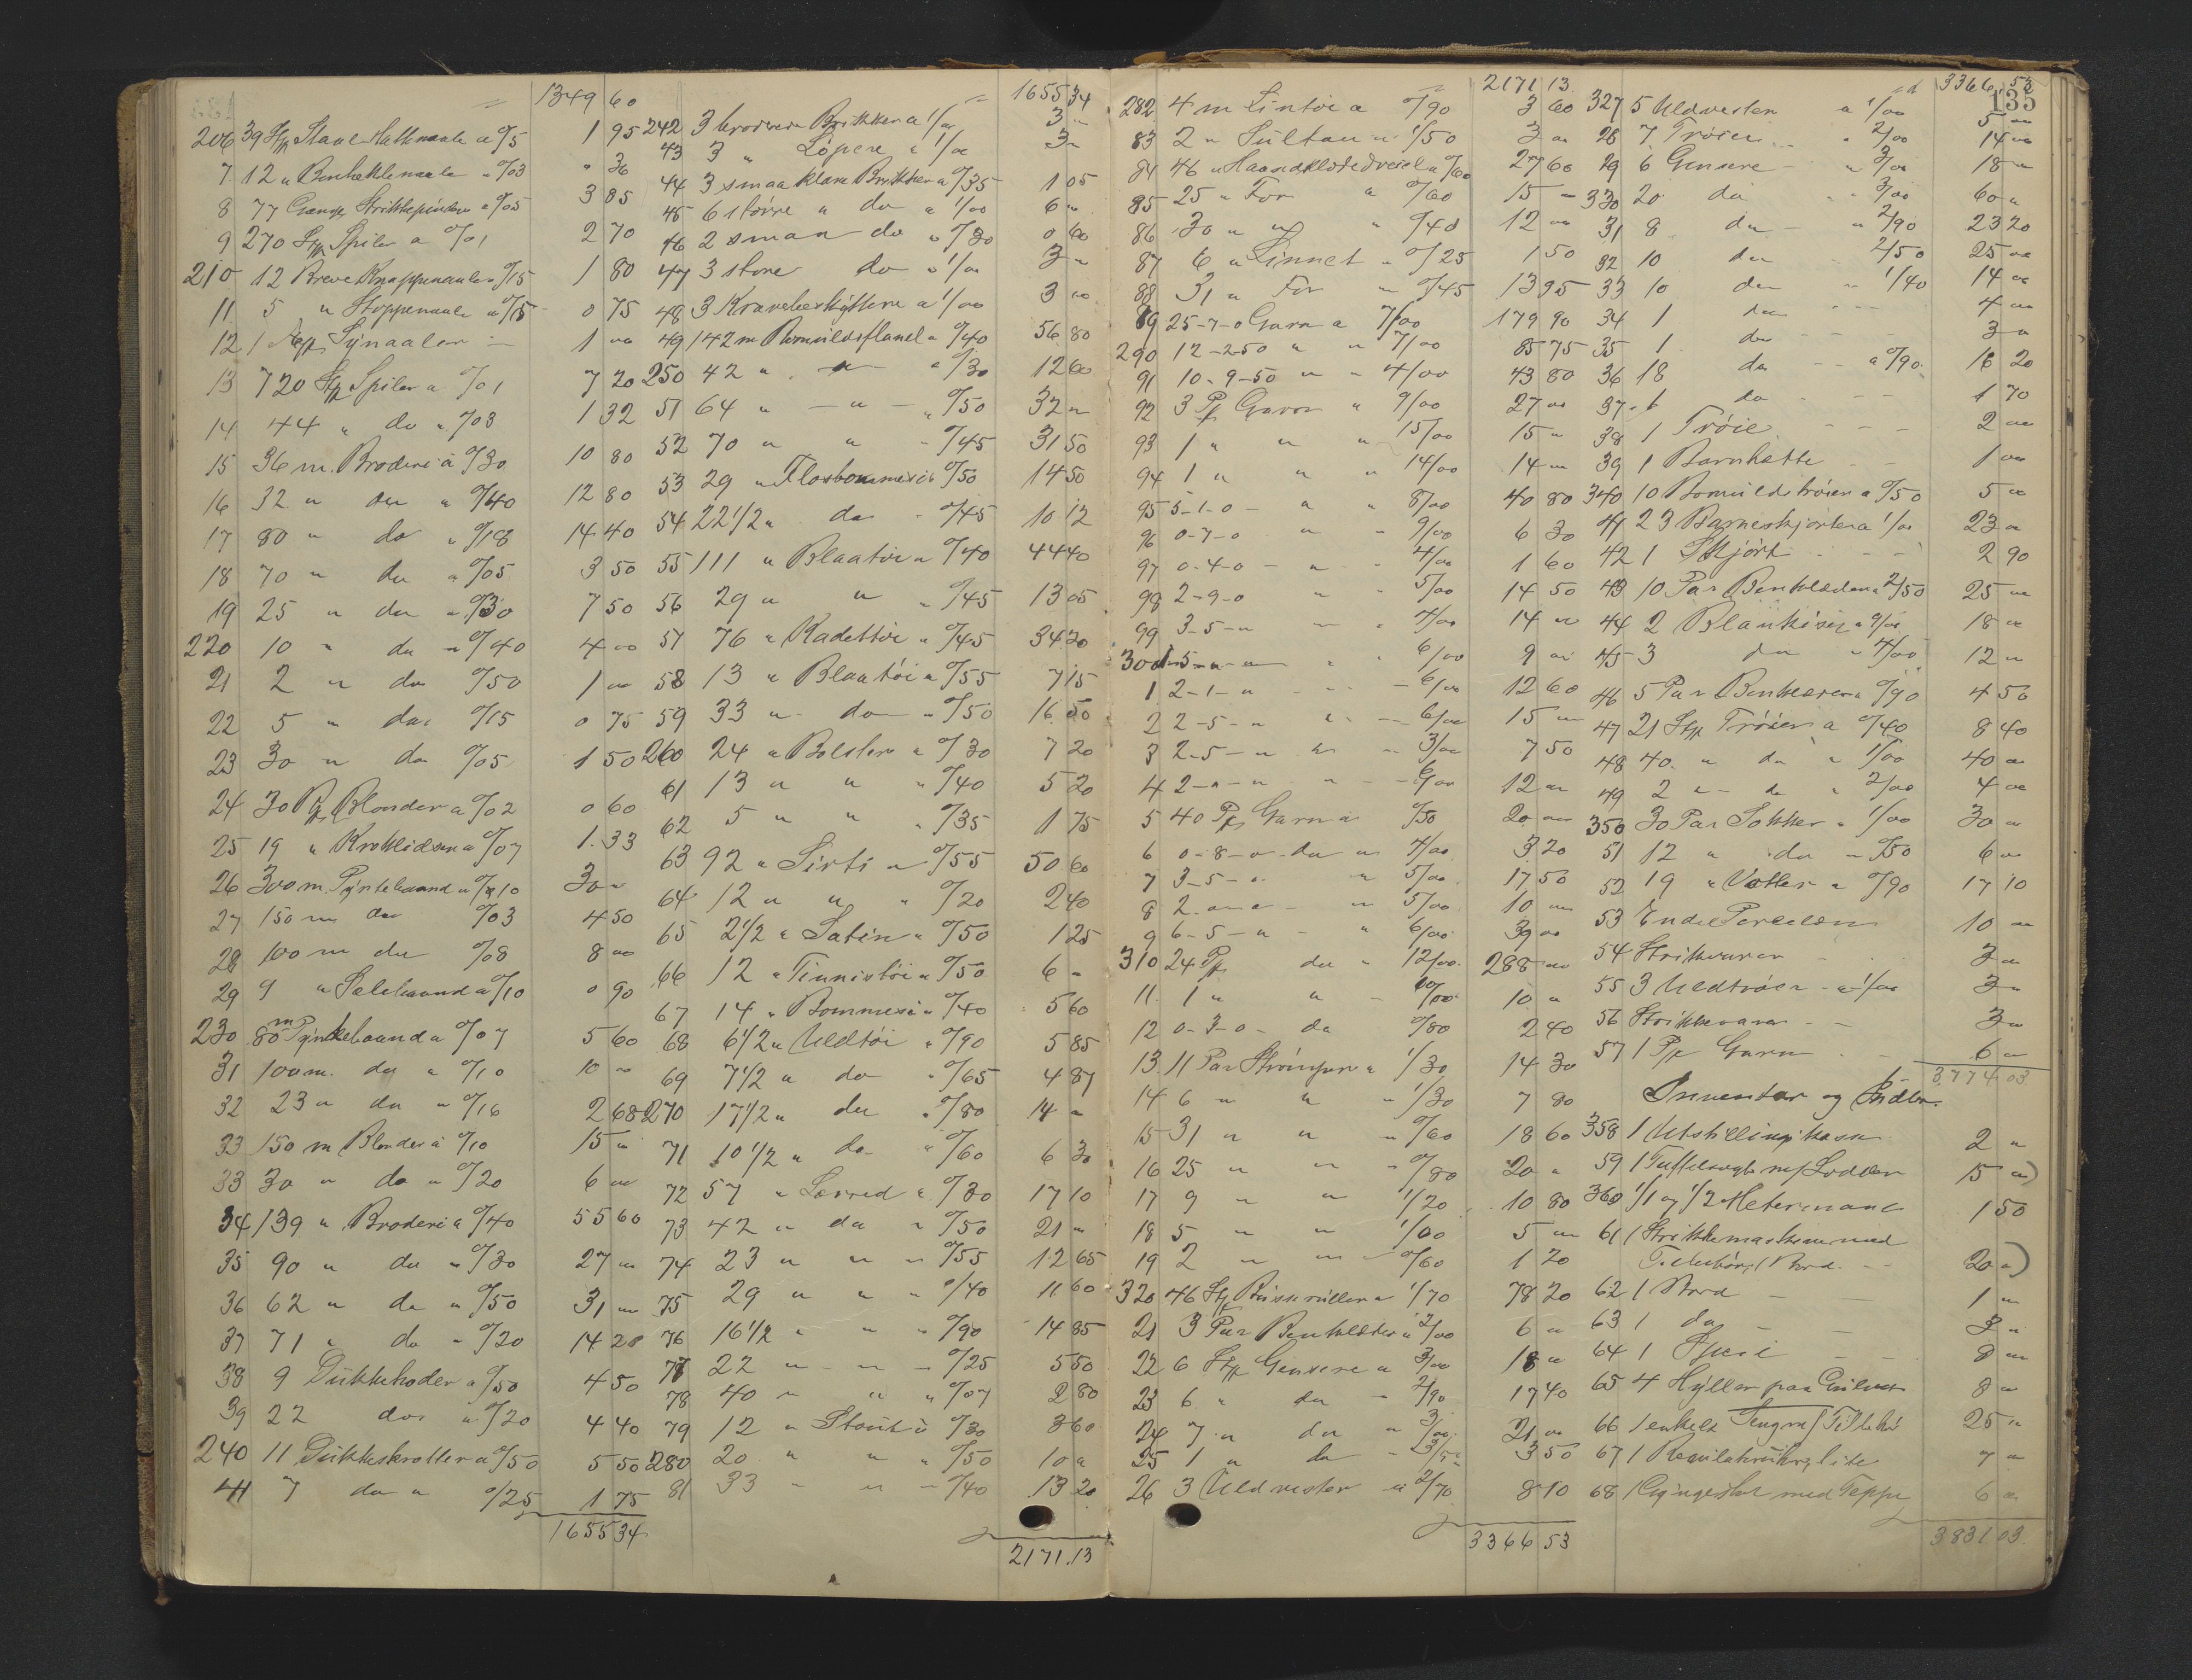 1349 60
206 39 Stk Staal Hatknaale a 0/5 1 95
7 12 " Benheklenaale " 0/03 " 36
8 77 Strikkepinder a 0/05 3 85
9 270 Stk Spiler a 0/01 2 70
210 12 Breve Knappenaaler 0/15 1 80
11 5 " Stoppenaale a 0/15 0 75
12 1 Synaaler 1 00
13 720 Stk Spiler a 0/01 7 20
14 44 " do " 0/03 1 32
15 36 m. Broderi a 0/30 10 80
16 32 " do " 0/40 12 80
17 80 " do " 0/18 14 40
18 70 " do " 0/05 3 50
19 25 " do " 0/30 7 50
220 10 " do " 0/40 4 00
21 2 " do 0/50 1 00
22 5 " do 0/15 0 75
23 30 " do 0/05 1 50
24 30 Pk Blonder a 0/02 0 60
25 19 " a 0/07 1.33
26 300 m. Pyntebaand a 0/10 30 "
27 150 m do 0/03 4 50
28 100 m do 0/08 8 00
29 9 " a 0/10 0 90
230 80 m Pyntebaand a 0/07 5 60
31 100 m. do " 0/10 10 "
32 23 " do " 0/16 2 68
33 150 m Blonder a 0/10 15 "
33 30 " do " 0/20 6 00
34 139 " Broderi a 0/40 55 60
35 90 " do " 0/30 27 00
36 62 " do " 0/50 31 00
37 71 " do " 0/20 14 20
38 9 Dukkehoder a 0/50 4 50
39 22 do " 0/20 4 40
240 11 Dukkeskrotter a 0/50 5 50
41 7 do " 0/25 1 75
1655 34
1655 34
242 3 broderte Brikker a 1/00 3 "
43 3 " Løpere " 1/00 3 "
44 3 smaa Brikker a 0/35 1 05
45 6 større " do " 1/00 6 "
46 2 smaa do " 0/30 0 60
47 3 store do " 1/00 3 "
48 3 Kravebeskyttere a 1/00 3 00
49 142 m Bomuldsflanel " 0/40 56 80
250 42 " " " 0/30 12 60
51 64 " " " 0/50 32 "
52 70 " " " 0/45 31 50
53 29 " Flosbommesi " 0/50 14 50
54 22 1/2 " do " 0/45 10 12
55 111 " Blaatøi " 0/40 44 40
56 29 " " " 0/45 13 05
57 76 " Kadettøi " 0/45 34 20
58 13 " Blaatøi " 0/55 7 15
59 33 " do " 0/50 16 50
260 24 " Bolster " 0/30 7 20
61 13 " " " 0/40 5 20
62 5 " " " 0/35 1 75
63 92 " Sirts " 0/55 50 60
64 12 " " " 0/20 2 40
65 2 1/2 " Satin " 0/50 1 25
66 12 " Tennistøi " 0/50 6 "
67 14 " Bommesi " 0/40 5 60
68 6 1/2 " Uldtøi " 0/90 5 85
69 7 1/2 " do " 0/65 4 87
270 17 1/2 " do " 0/80 14 "
71 10 1/2 " do " 0/60 6 30
72 57 " Lærred " 0/30 17 10
73 42 " do " 0/50 21 "
74 23 " " " 0/55 12 65
75 29 " " " 0/40 11 60
76 16 1/2 " " " 0/90 14 85
77 22 " " " 0/25 5 50
78 40 " " " 0/07 2 80
79 12 " Stout " 0/30 3 60
280 20 " " " 0/50 10 "
81 33 " " 0/40 13 20
2171.13
2171 13
282 4 m Lintøi a 0/90 3 60
83 2 " Sultan " 1/50 3 00
84 46 " Haandklædedreiel " 0/60 27 60
85 25 " For " 0/60 15 "
86 30 " " " 0/40 12 00
87 6 " Linnet " 0/25 1 50
88 31 " For " 0/45 13 95
89 25-7-0 Garn a 7/00 179 90
290 12-2-50 " " 7/00 85 75
91 10-9-50 " " 4/00 43 80
92 3 Pk Garn " 9/00 27 00
93 1 " " " 15/00 15 "
94 1 " " " 14/00 14 "
95 5-1-0 " " 8/00 40 80
96 0-7-0 " " 9/00 6 30
97 0-4-0 " " 4/00 1 60
98 2-9-0 " " 5/00 14 50
99 3-5-" " " 4/00 14 "
300 1-5-" " " 6/00 9 00
1 2-1-" " 6/00 12 60
2 2-5-" " 6/00 15 00
3 2-5-" " " 3/00 7 50
4 2-"-" " 6/00 12 00
5 40 Pk Garn a 0/50 20 00
6 0-8-0 do " 4/00 3 20
7 3-5-" " 5/00 17 50
8 2-"-" " 5/00 10 00
9 6-5-" " 6/00 39 00
310 24 Pk do " 12/00 288 00
11 1 " " 10/00 10 "
12 0-3-0 do 0/80 2 40
13 11 Par Strømper a 1/30 14 30
14 6 " " " 1/30 7 80
15 31 " " " 0/60 18 60
16 25 " " " 0/80 20 "
17 9 " " 1/20 10 80
18 5 " " 1/00 5 00
19 2 " " 0/60 1 20
320 46 Stk a 1/70 78 20
21 3 Par Benklæder a 2/00 6 00
22 6 Stk Gensere a 3/00 18 00
23 6 " do " 2/90 17 40
24 7 " do " 3/00 21 00
25 1 " do 3/50 3 50
26 3 Uldvester a 2/70 8 10
3366 53
135
3366 53
327 5 Uldvester a 1/00 5 00
28 7 Trøier " 2/00 14 00
29 6 Gensere " 3/00 18 "
330 20 do " 3/00 60 "
31 8 do " 2/90 23 20
32 10 do 2/50 25 00
33 10 do " 1/40 14 00
34 1 do 4 00
35 1 do 3 "
36 18 do a 0/90 16 20
37 1 do 1 70
38 1 Trøie 2 00
39 1 Barnhætte 1 00
340 10 Bomuldstrøier a 0/50 5 00
41 23 Barneskjorter a 1/00 23 "
42 1 Skjørt 2 90
43 10 Par Benklæder a 2/50 25 00
44 2 " 9/00 18 00
45 3 do " 4/00 12 "
46 5 Par " 0/90 4 50
47 21 Stk Trøier a 0/40 8 40
48 40 " do " 1/00 40 00
49 2 " do " 2/00 4 00
350 30 Par Sokker " 1/00 30 "
51 12 " do " 0/50 6 00
52 19 " Votter " 0/90 17 10
53 Endel Porcelæn 10 00
54 Strikvarer 3 "
55 3 Uldtrøier a 1/00 3 "
56 Strikkevarer 3 00
57 1 Pk Garn 6 "
3774 03
Inventar og
358 1 Utstillingskasse 2 "
59 1 m/Lodder 15 00)
360 1/1 og 1/2 Metermaal 1 50
61 1 Strikkemaskine med
Tilbehør, 1 Bord 20 ")
62 1 Bord 1 "
63 1 do 3 "
64 1 Speil
65 4 Hyller paa 8 "
66 1 enkelt Seng m/Tilbehør 25 "
67 1 Regulatoruhr, lite 7 "
68 1 Gyngestol med Teppe 6 00
3831 03